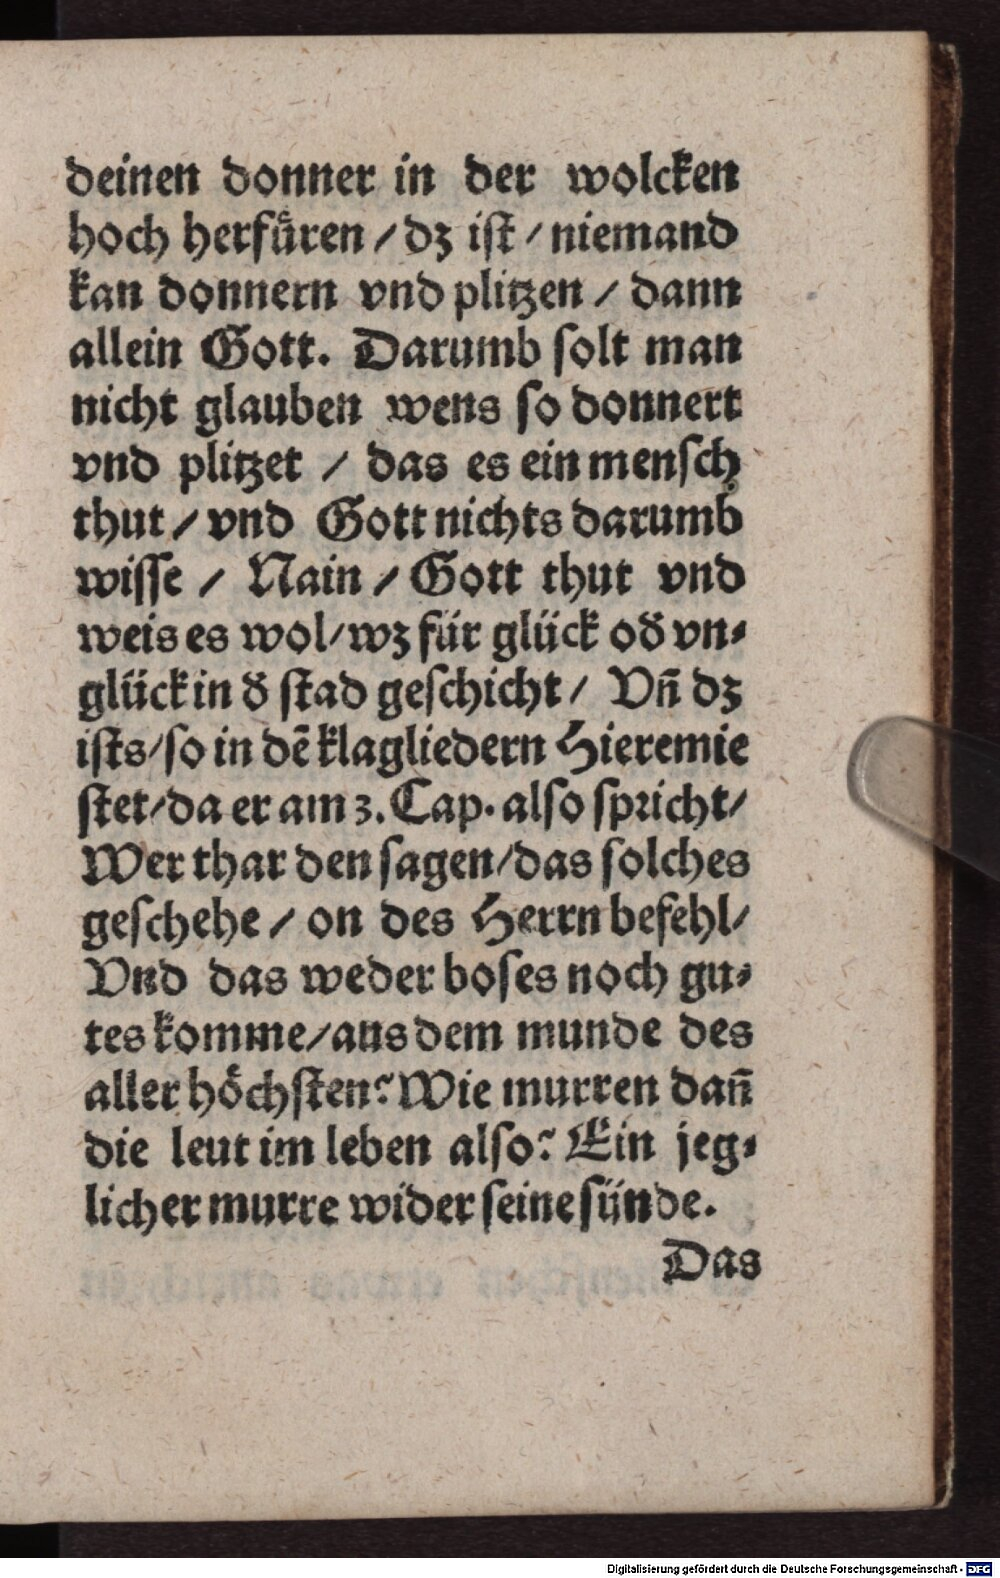 deinen donner in der wolcken
hoch herfuͤren / dz ist / niemand
kan donnern vnd plitzen / dann
allein Gott. Darumb solt man
nicht glauben wens so donnert
vnd plitzet / das es ein mensch
thut / vnd Gott nichts darumb
wisse / Nain / Gott thut vnd
weis es wol / wz für glück oð vn⸗
glück in ð stad geschicht / Vn̄ dz
ists / so in dē klagliedern Hieremie
stet / da er am 3. Cap. also spricht /
Wer thar den sagen / das solches
geschehe / on des Herrn befehl /
Vnd das weder boses noch gu⸗
tes komme / aus dem munde des
aller hoͤchsten? Wie murren dan̄
die leut im leben also? Ein jeg⸗
licher murre wider seine sünde.
Das
Digitalisierung gefördert durch die Deutsche Forschungsgemeinschaft - DFG